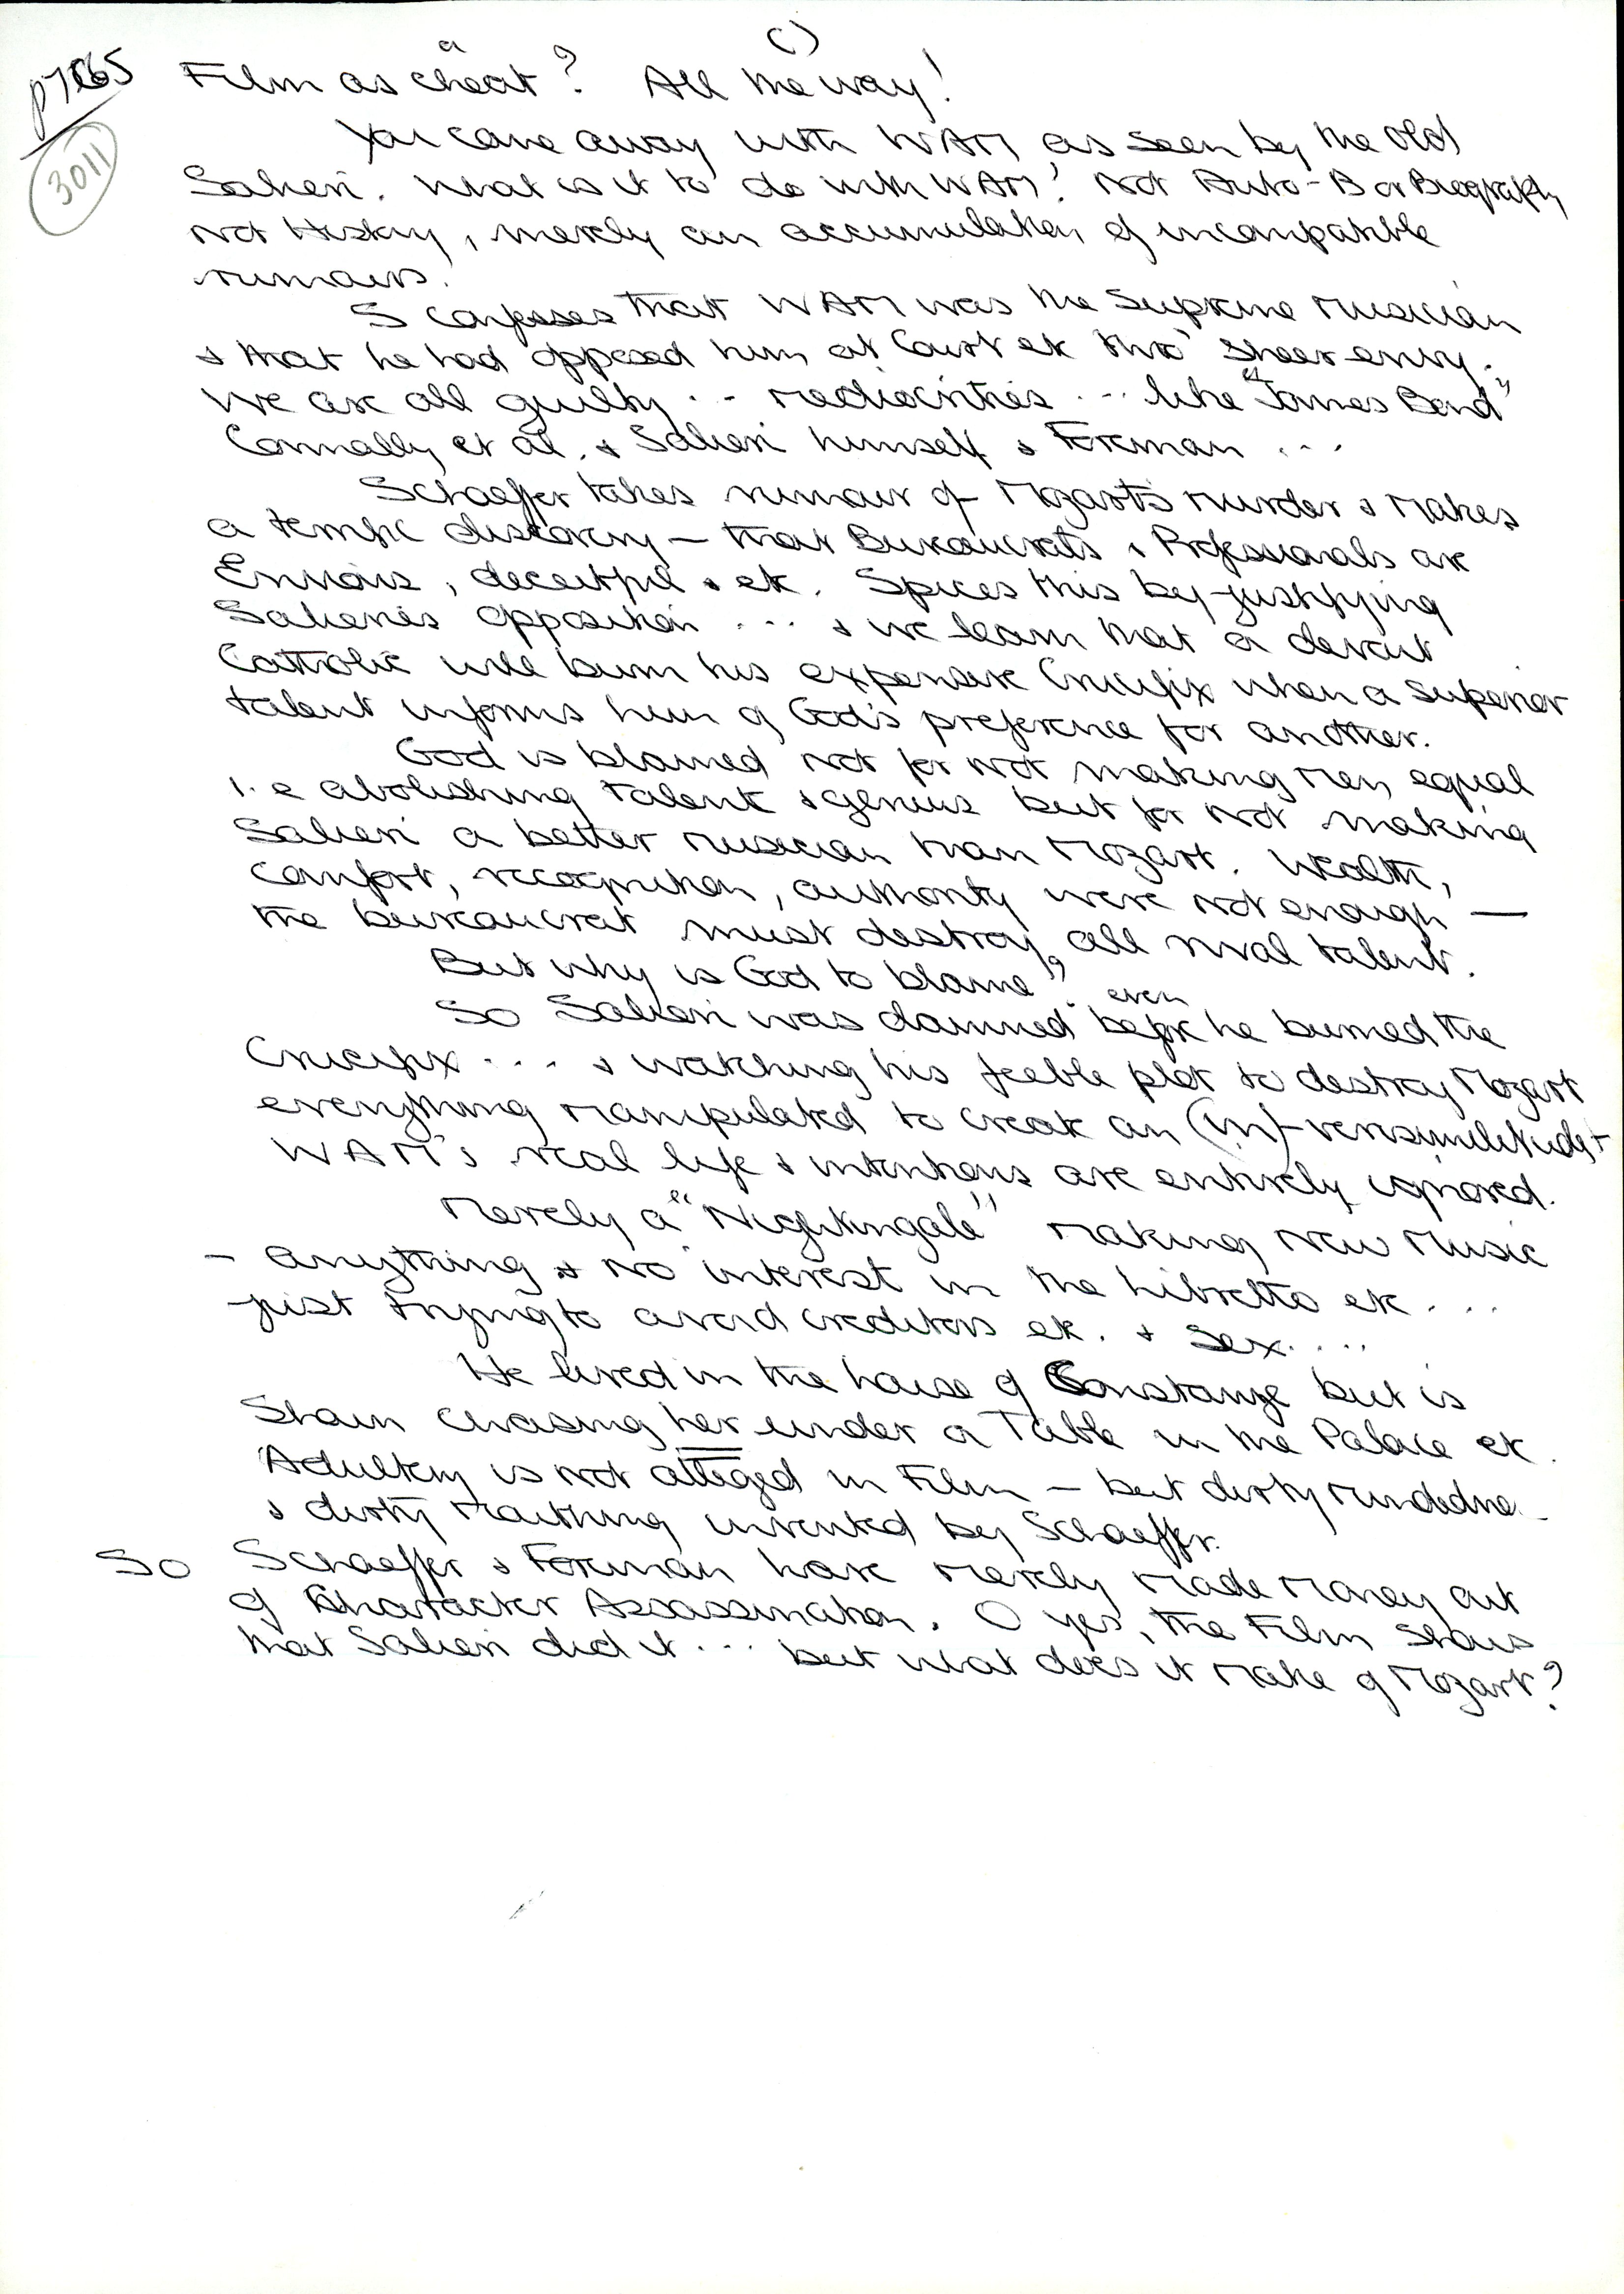 c)
p7865
3011
Film as a cheat? All the way!
You came away with WAM as seen by the old
Salieri. What is it to do with WAM? Not Auto-B or Biography
not History, merely an accumulation of incompatible
rumours.
S confesses that WAM was the Supreme Musician
& that he had opposed him at Court etc thro' sheer envy.
We are all guilty ... mediocrities ... like "James Bond"
Connally et al. & Salieri himself & Foreman ...
Schaeffer takes rumour of Mozart's murder & makes
a terrific discovery — that Bureaucrats & Professionals are
Envious, deceitful & etc. Spices this by justifying
Salieri's opposition ... & we learn that a devout
Catholic will burn his expensive Crucifix when a superior
talent informs him of God's preference for another.
God is blamed not for not making men equal
i.e abolishing talent & genius but for not making
Salieri a better musician than Mozart. Wealth,
Comfort, recognition, authority were not enough —
the bureaucrat must destroy all rival talent.
But why is God to blame?
So Salieri was damned even before he burned the
Crucifix .... & watching his feeble plot to destroy Mozart
everything manipulated to create an (in)-verisimilitude +
WAM's real life & intentions are entirely ignored.
Merely a "Nightingale" making new Music
- anything & no interest in the libretto etc ...
just trying to avoid creditors etc. & Sex....
He lived in the house of Constanze but is
Shown chasing her under a Table in the Palace etc.
Adultery is not alleged in Film — but dirty mindedne
& dirty mouthing invented by Schaeffr.
So Schaeffer & Foreman have merely made money out
of Character Assassination. O yes, the Film shows
that Salieri did it ... but what does it make of Mozart?